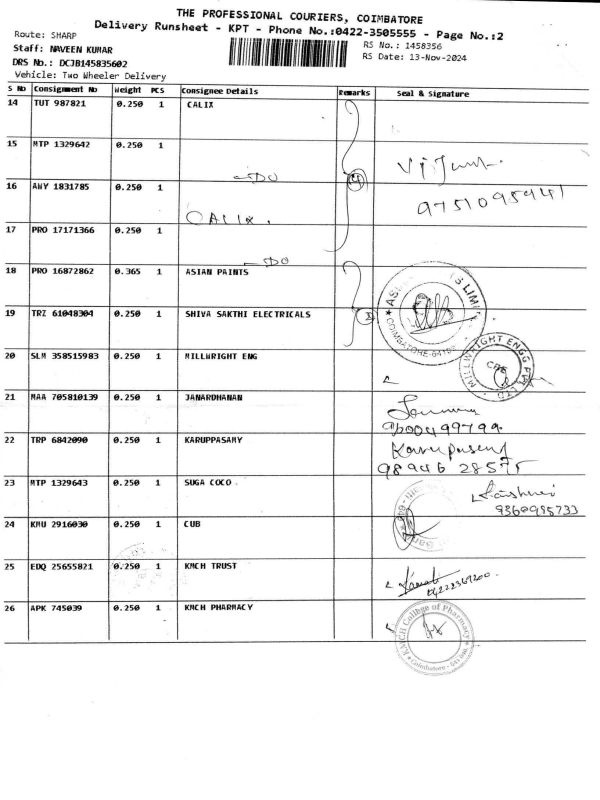 THE PROFESSIONAL COURIERS, COIMBATORE
Delivery Runsheet - KPT - Phone No.:0422-3505555 - Page No.:2
Route: SHARP
RS No.: 1458356
Staff: NAVEEN KUMAR
RS Date: 13-Nov-2024
DRS No.: DCJB145835602
Vehicle: Two Wheeler Delivery
S No Consignment No Weight PCS Consignee Details Remarks Seal & Signature
14 TUT 987821 0.250 1 CALIX
15 MTP 1329642 0.250 1
-DO
4
16 AWY 1831785 0.250 1
9751095941
CALIX.
17 PRO 17171366 0.250 1
-DO
18 PRO 16872862 0.365 1 ASIAN PAINTS
19 TRZ 61048304 0.250 1 SHIVA SAKTHI ELECTRICALS
COIMBATORE
20 SLM 358515983 0.250 1 MILLWRIGHT ENG
MILLWRIGHT ENGG PVT LTD
21 MAA 705810139 0.250 1 JANARDHANAN
9600499799
22 TRP 6842090 0.250 1 KARUPPASAMY
98946 28575
23 MTP 1329643 0.250 1 SUGA COCO
9360985733
24 KMU 2916030 0.250 1 CUB
25 EDQ 25655821 0.250 1 KMCH TRUST
26 APK 745039 0.250 1 KMCH PHARMACY
KMCH College of Pharmacy
Coimbatore